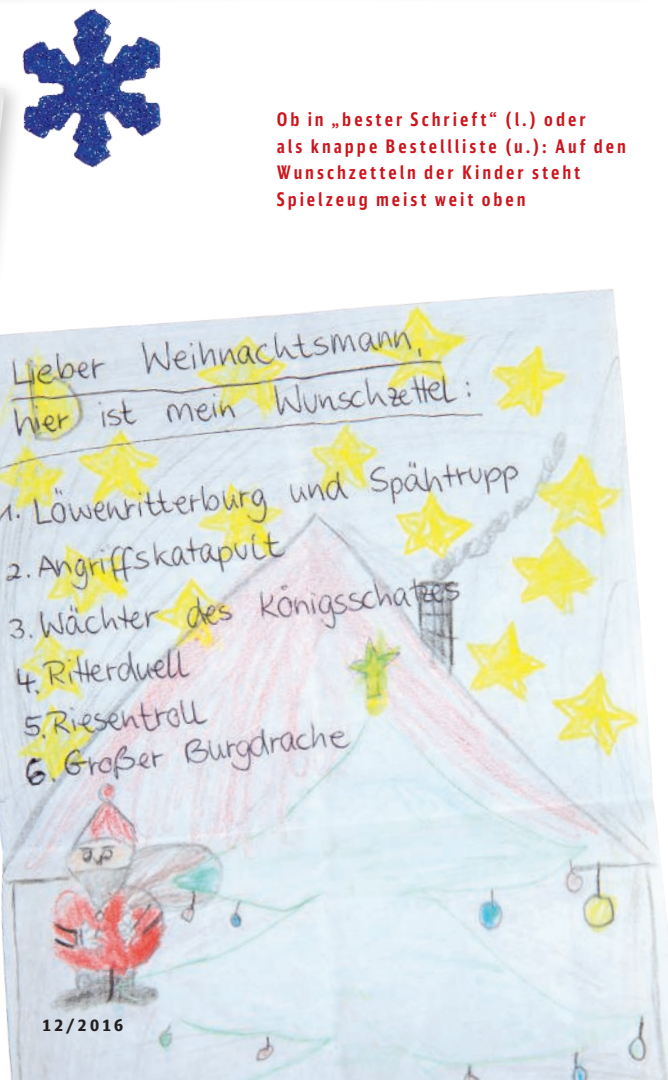 Ob in „bester Schrieft“ (l.) oder
als knappe Bestellliste (u.): Auf den
Wunschzetteln der Kinder steht
Spielzeug meist weit oben
Lieber Weihnachtsmann,
hier ist mein Wunschzettel:
1. Löwenritterburg und Spähtrupp
2. Angriffskatapult
3. Wächter des Königsschatzes
4. Ritterduell
5. Riesentroll
6. Großer Burgdrache
12/2016